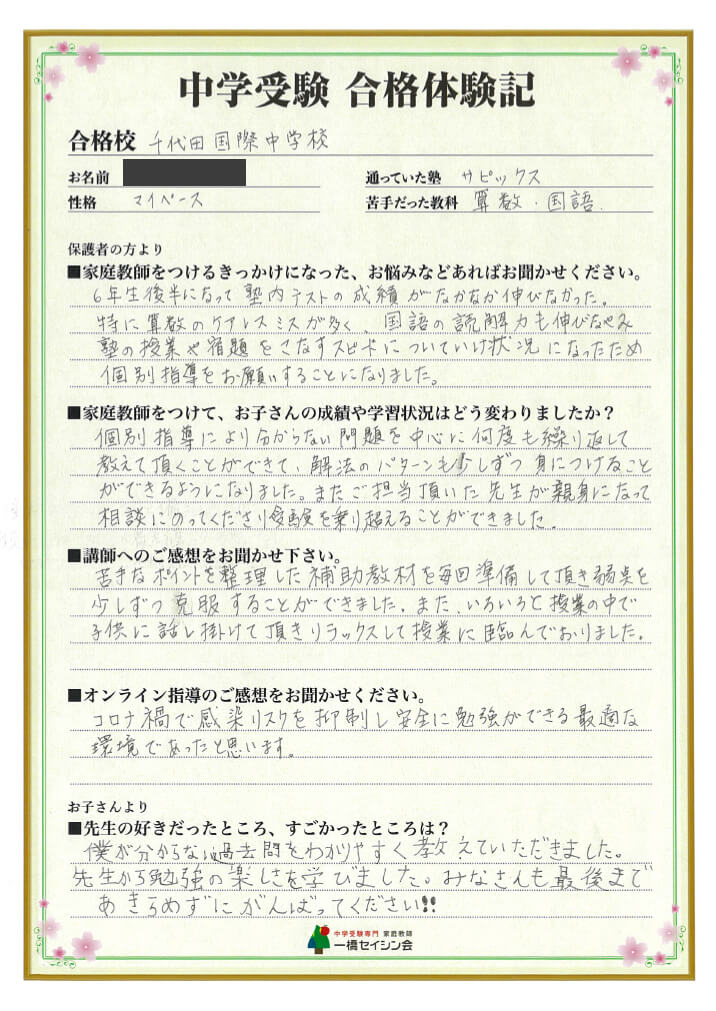 中学受験 合格体験記
合格校 千代田国際中学校
お名前
通っていた塾 サピックス
性格 マイペース
苦手だった教科 算数・国語.
保護者の方より
■家庭教師をつけるきっかけになった、お悩みなどあればお聞かせください。
6年生後半になって塾内テストの成績がなかなか伸びなかった。
特に算数のケアレスミスが多く、国語の読解力も伸びなやみ
塾の授業や宿題をこなすスピードについていけ状況になったため
個別指導をお願いすることになりました。
■家庭教師をつけて、お子さんの成績や学習状況はどう変わりましたか？
個別指導により分からない問題を中心に何度も繰り返して
教えて頂くことができて、解法のパターンも少しずつ身につけること
ができるようになりました。またご担当頂いた先生が親身になって
相談にのってくださり受験を乗り超えることができました.
■講師へのご感想をお聞かせ下さい。
苦手なポイントを整理した補助教材を毎回準備して頂き弱点を
少しずつ克服することができました. また、いろいろと授業の中で
子供に話し掛けて頂きリラックスして授業に臨んでおりました.
■オンライン指導のご感想をお聞かせください。
コロナ禍で感染リスクを抑制し安全に勉強ができる最適な
環境であったと思います。
お子さんより
■先生の好きだったところ、すごかったところは？
僕が分からない過去問をわかりやすく教えていただきました。
先生から勉強の楽しさを学びました。みなさんも最後まで
あきらめずにがんばってください!!
中学受験専門 家庭教師
一橋セイシン会